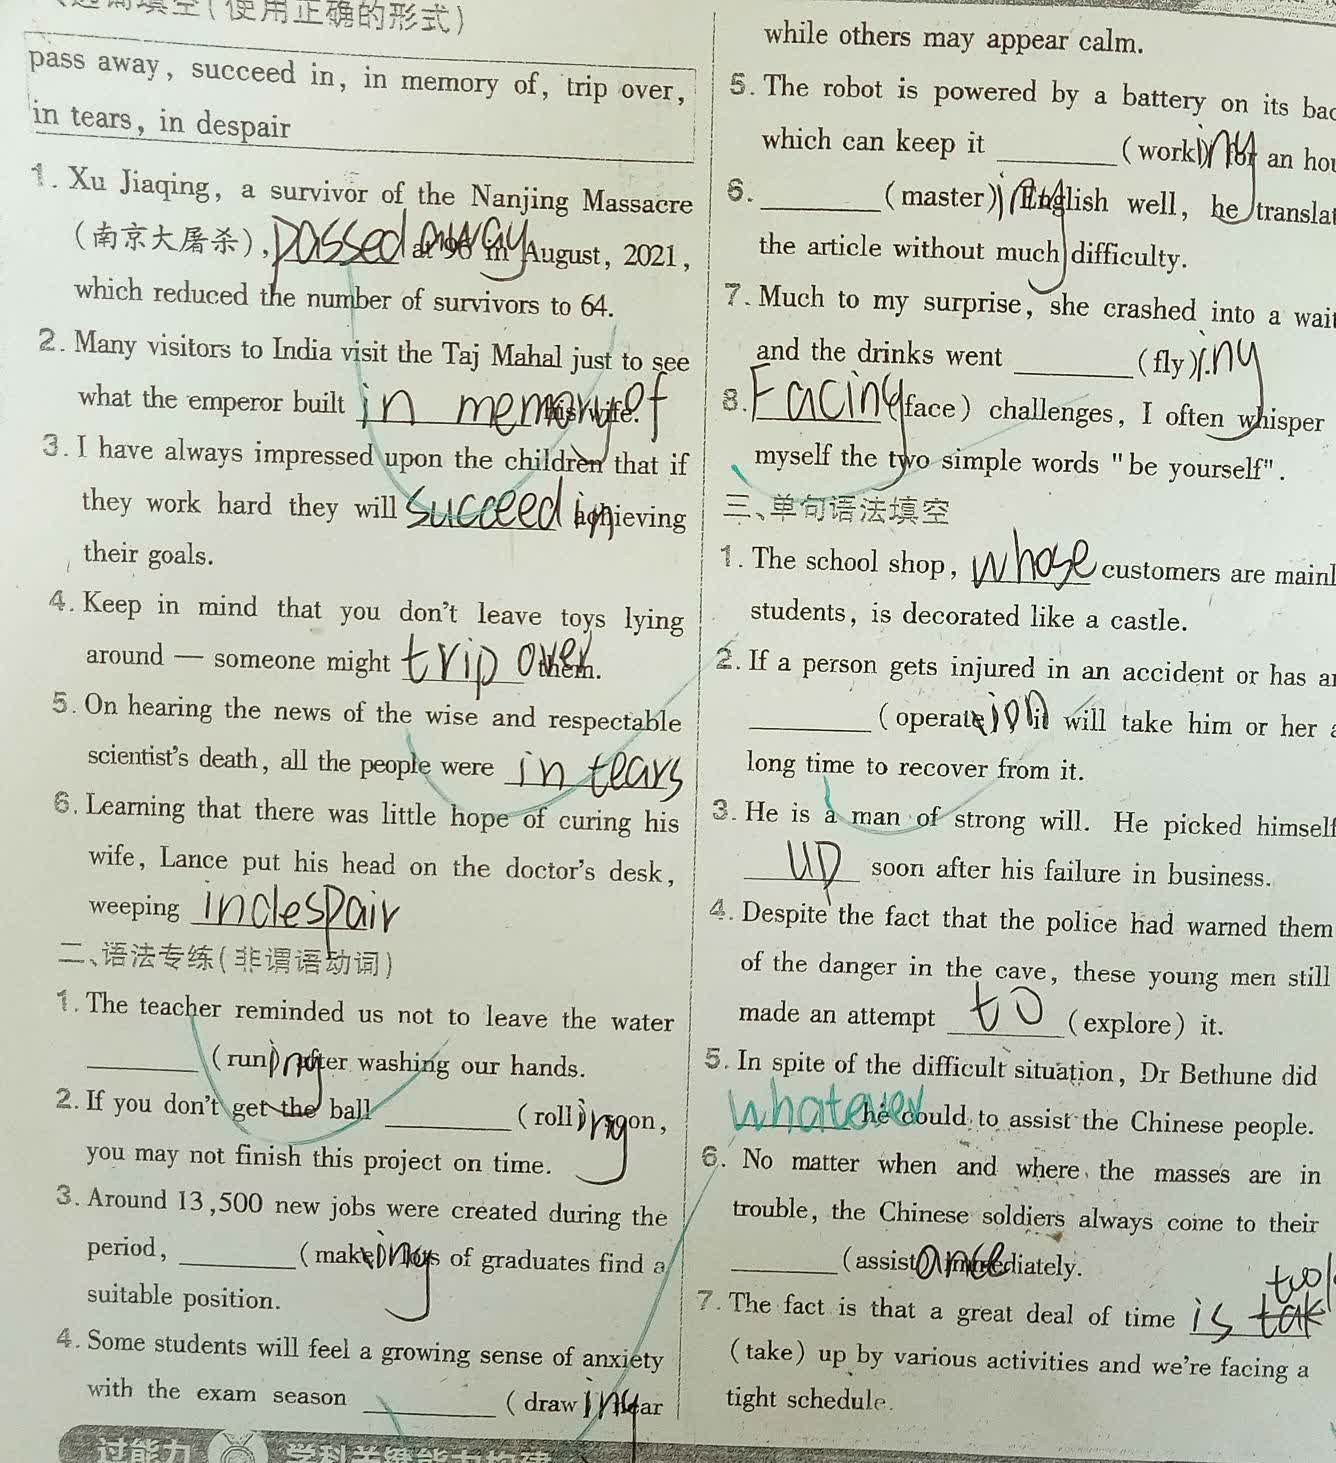 选词填空(使用正确的形式)
pass away, succeed in, in memory of, trip over,
in tears, in despair
1. Xu Jiaqing, a survivor of the Nanjing Massacre
(南京大屠杀), passed away at 96 in August, 2021,
which reduced the number of survivors to 64.
2. Many visitors to India visit the Taj Mahal just to see
what the emperor built in memory of his wife.
3. I have always impressed upon the children that if
they work hard they will succeed in achieving
their goals.
4. Keep in mind that you don't leave toys lying
around — someone might trip over them.
5. On hearing the news of the wise and respectable
scientist's death, all the people were in tears
6. Learning that there was little hope of curing his
wife, Lance put his head on the doctor's desk,
weeping in despair
二、语法专练(非谓语动词)
1. The teacher reminded us not to leave the water
________ (run) ing after washing our hands.
2. If you don't get the ball ________ (roll) ing on,
you may not finish this project on time.
3. Around 13,500 new jobs were created during the
period, ________ (make) ing of graduates find a
suitable position.
4. Some students will feel a growing sense of anxiety
with the exam season ________ (draw) ing near
过能力
while others may appear calm.
5. The robot is powered by a battery on its
which can keep it ________ (work) ing for an
6. ________ (master) ing English well, he
the article without much difficulty.
7. Much to my surprise, she crashed into a
and the drinks went ________ (fly) ing
8. Facing (face) challenges, I often whisper
myself the two simple words "be yourself".
三、单句语法填空
1. The school shop, whose customers are
students, is decorated like a castle.
2. If a person gets injured in an accident or has
________ (operate) ion it will take him or her
long time to recover from it.
3. He is a man of strong will. He picked himself
up soon after his failure in business.
4. Despite the fact that the police had warned them
of the danger in the cave, these young men still
made an attempt to (explore) it.
5. In spite of the difficult situation, Dr Bethune did
whatever he could to assist the Chinese people.
6. No matter when and where the masses are in
trouble, the Chinese soldiers always come to their
________ (assist) ance immediately.
7. The fact is that a great deal of time is
(take) up by various activities and we're facing a
tight schedule.